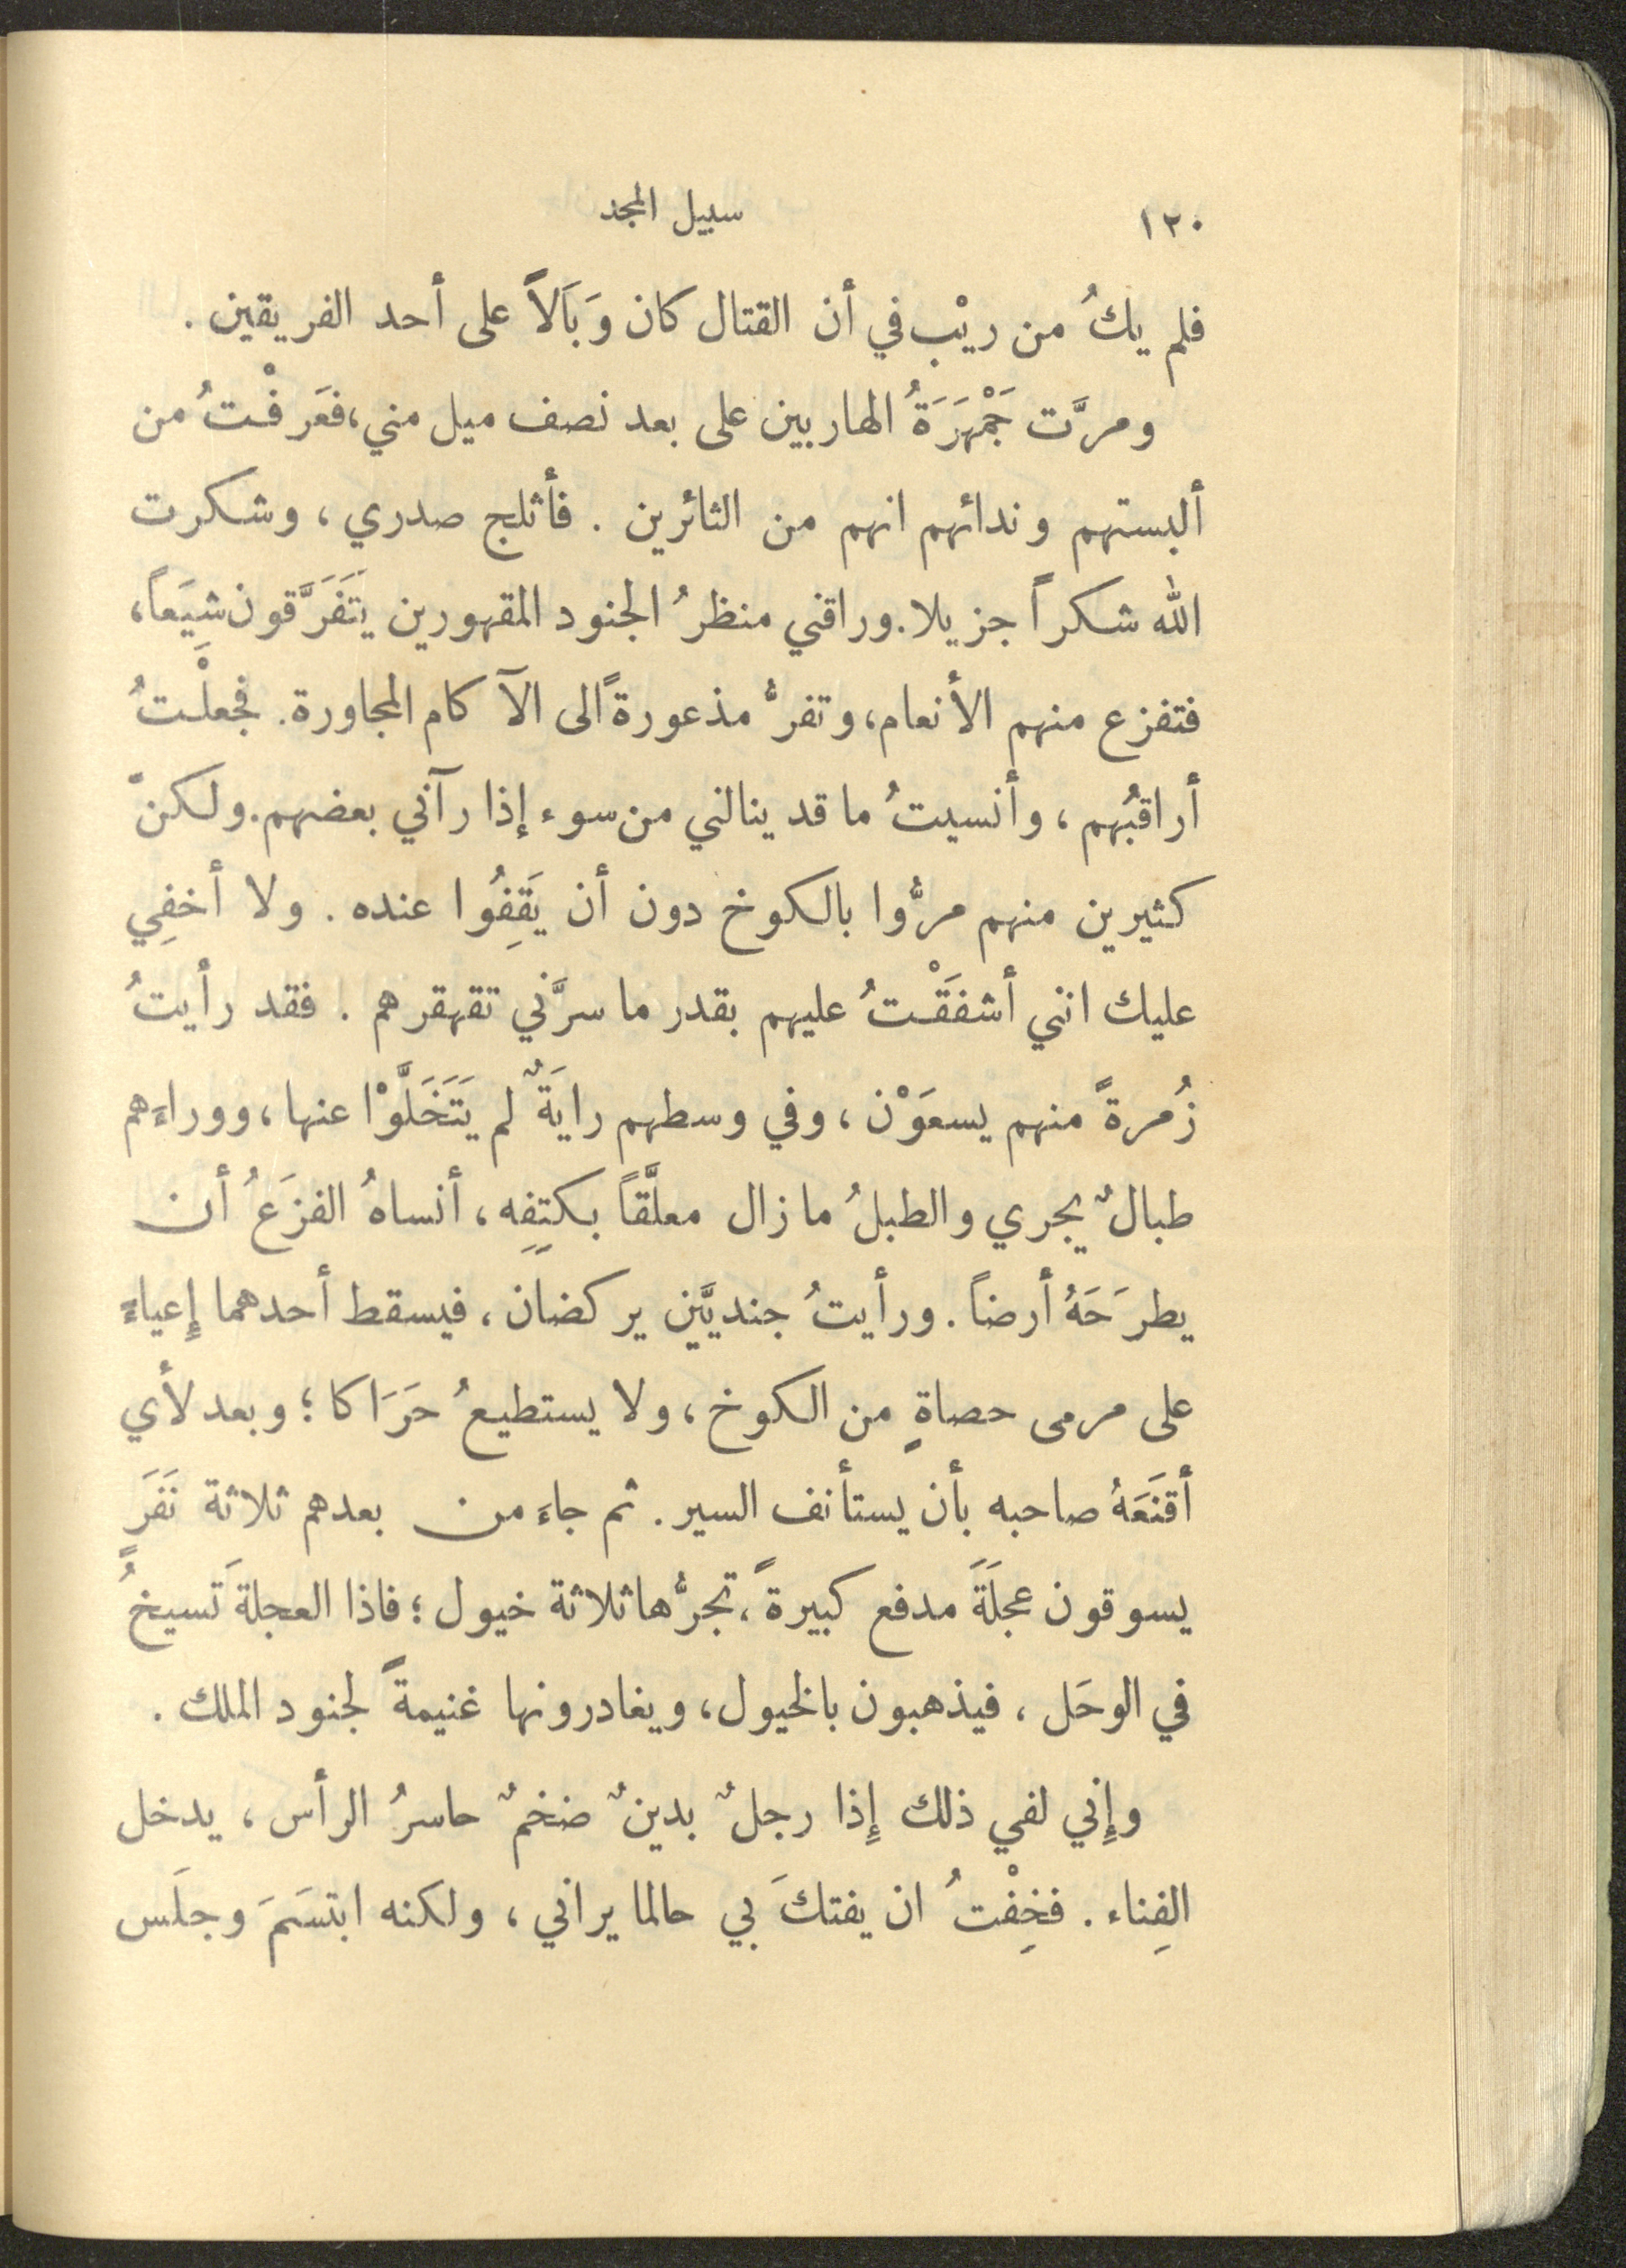 ١٢٠
سبيل المجد
فلم يكُ من ريْب في أن القتال كان وَبَالاً على أحد الفريقين .
ومرَّت جَمْهَرَةُ الهاربين على بعد نصف ميل مني، فعَرفْتُ من
ألبستهم وندائهم انهم من الثائرين . فأثلج صدري ، وشكرت
الله شكراً جزيلا. وراقني منظرُ الجنود المقهورين يَتَفَرَّقون شِيَعاً،
فتفزع منهم الأنعام، وتفرُّ مذعورةً الى الآكام المجاورة. فجعلْتُ
أراقبُهم ، وأنسيتُ ما قد ينالني من سوء إذا رآني بعضهم. ولكنّ
كثيرين منهم مرُّوا بالكوخ دون أن يَقِفُوا عنده . ولا أخفِي
عليك انني أشفَقْتُ عليهم بقدر ما سرَّني تقهقرهم . فقد رأيتُ
زُمرةً منهم يسعَوْن ، وفي وسطهم رايَةٌ لم يَتَخَلَّوْا عنها ، ووراءَهم
طبالٌ يجري والطبلُ ما زال معلَّقاً بكتِفِه ، أنساهُ الفزَعُ أن
يطرَحَهُ أرضاً . ورأيتُ جنديَّين يركضان ، فيسقط أحدهما إِعياءً
على مرمى حصاةٍ من الكوخ ، ولا يستطيعُ حَرَاكا ؛ وبعد لأي
أقنَعَهُ صاحبه بأن يستأنف السير . ثم جاءَ من بعدهم ثلاثة نَفَرٍ
يسوقون عجلَةَ مدفع كبيرةً ، تجرُّها ثلاثة خيول ؛ فاذا العجلةَ تسيخُ
في الوحَل ، فيذهبون بالخيول ، ويغادرونها غنيمةً لجنود الملك .
وإِني لفي ذلك إِذا رجلٌ بدينٌ ضخمٌ حاسرُ الرأس ، يدخل
الفِناء . فخِفْتُ ان يفتكَ بي حالما يراني ، ولكنه ابتسَمَ وجلَس